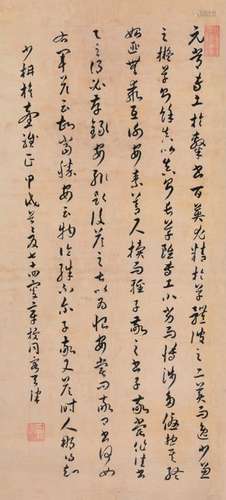 元常專工於隸書百英尤精於草體彼之二美而逸少兼
之擬草則餘真比真則長草雖專工小劣而博涉多優總其終
始匪無乖互謝安素善尺牘而輕子敬之書子敬嘗作佳書
與之謂必存錄安輒題後答之甚以為恨安嘗問敬卿書何如
右軍答云故當勝安云物論殊不爾子敬又答時人那得知
雅正甲戌孟夏七十四叟章梫同客天津